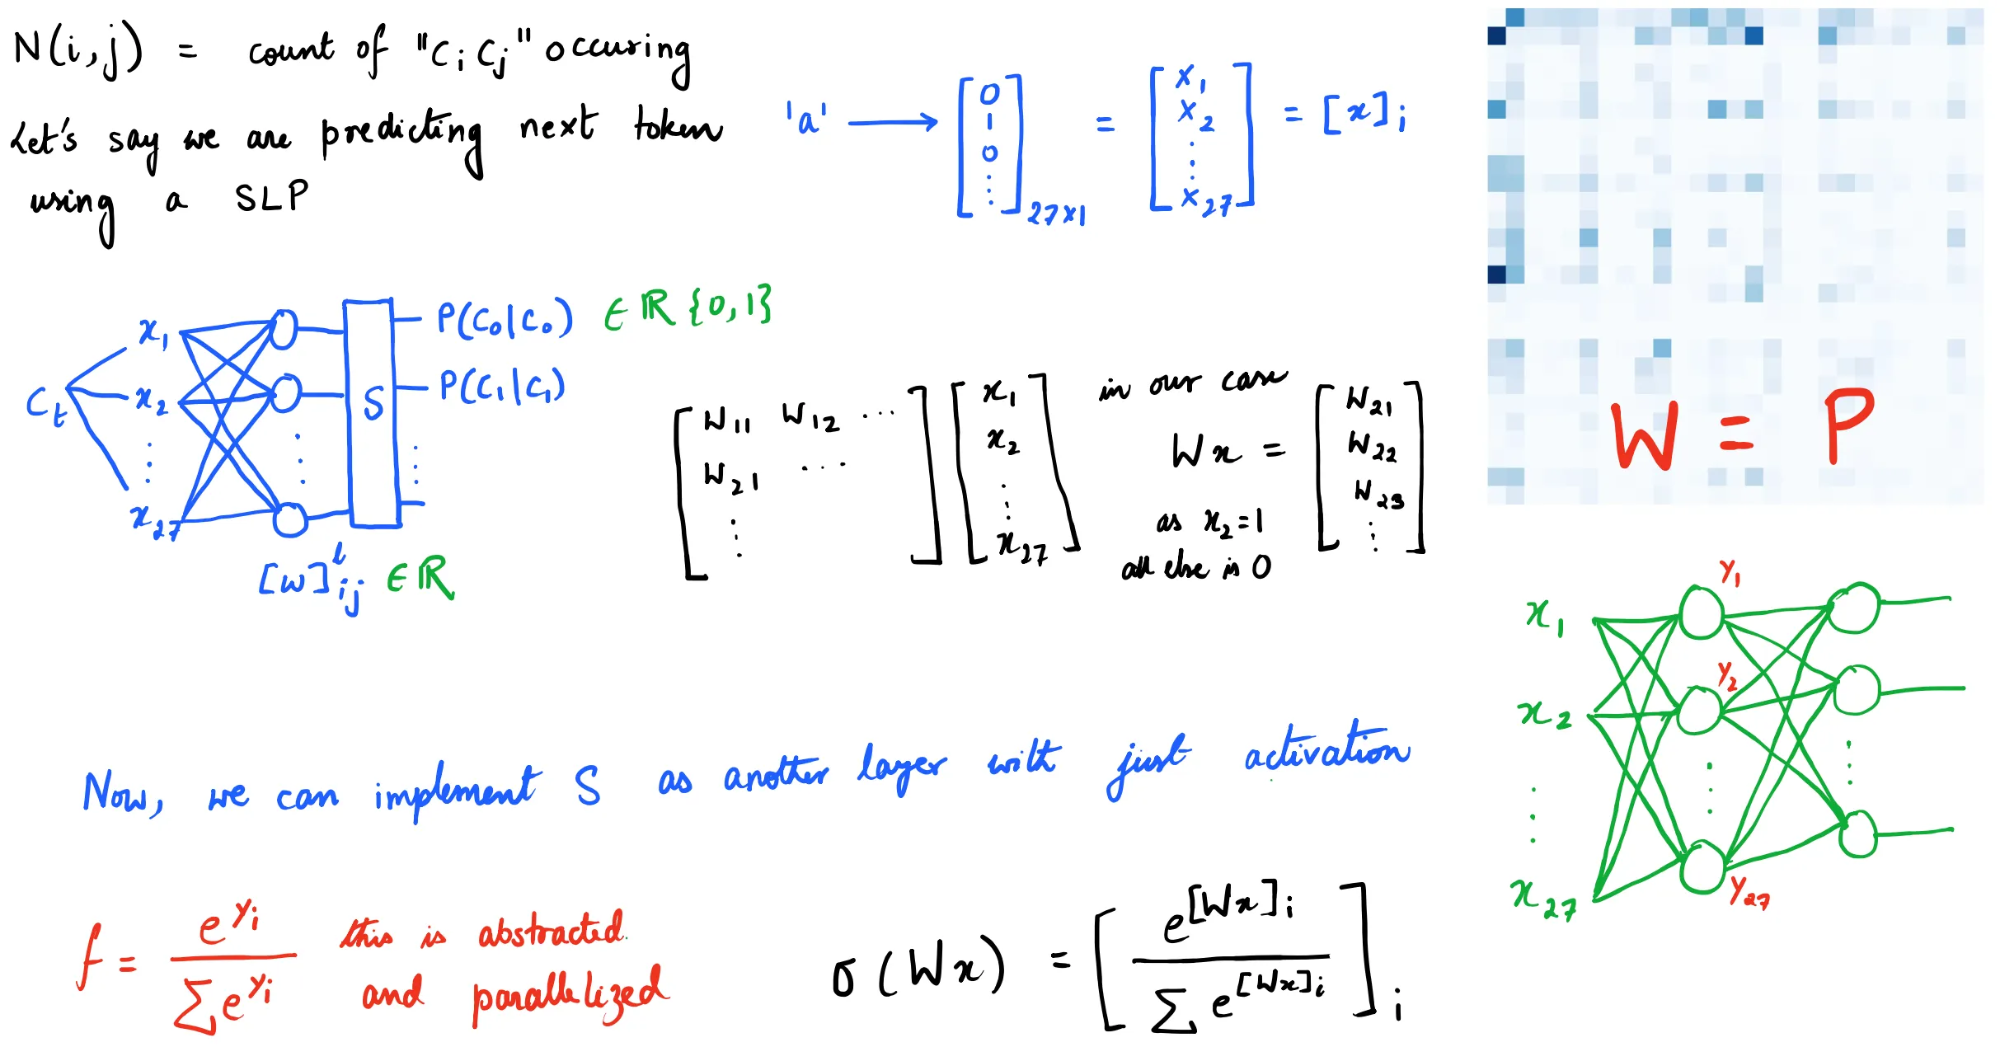 N(i,j) = count of "CiCj" occuring
Let's say we are predicting next token
using a SLP
'a' → [0 1 0 ⋮]27x1 = [x1 x2 ⋮ x27] = [x]i
Ct
x1
x2
⋮
x27
S
P(C0|C0) ∈ ℝ {0,1}
P(C1|C1)
⋮
[w]^l ij ∈ ℝ
[W11 W12 ...
W21 ...
⋮ ]
[x1
x2
⋮
x27]
in our case
Wx = [W21 W22 W23 ⋮]
as x2=1
all else is 0
W = P
x1
x2
⋮
x27
y1
y2
⋮
y27
Now, we can implement S as another layer with just activation
f = e^yi / ∑e^yi
this is abstracted
and parallelized
σ(Wx) = [e^[Wx]i / ∑ e^[Wx]i]i